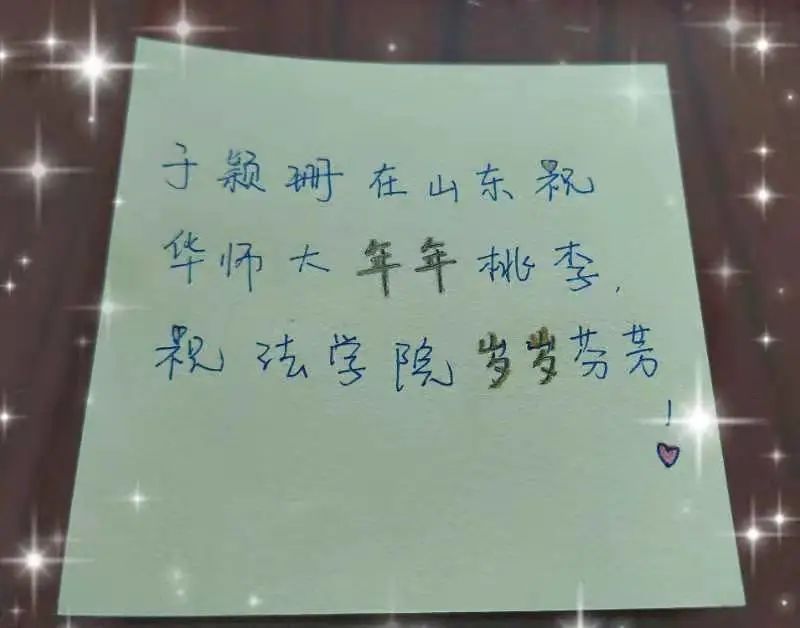 于颖珊在山东祝
华师大年年桃李,
祝法学院岁岁芬芳
!